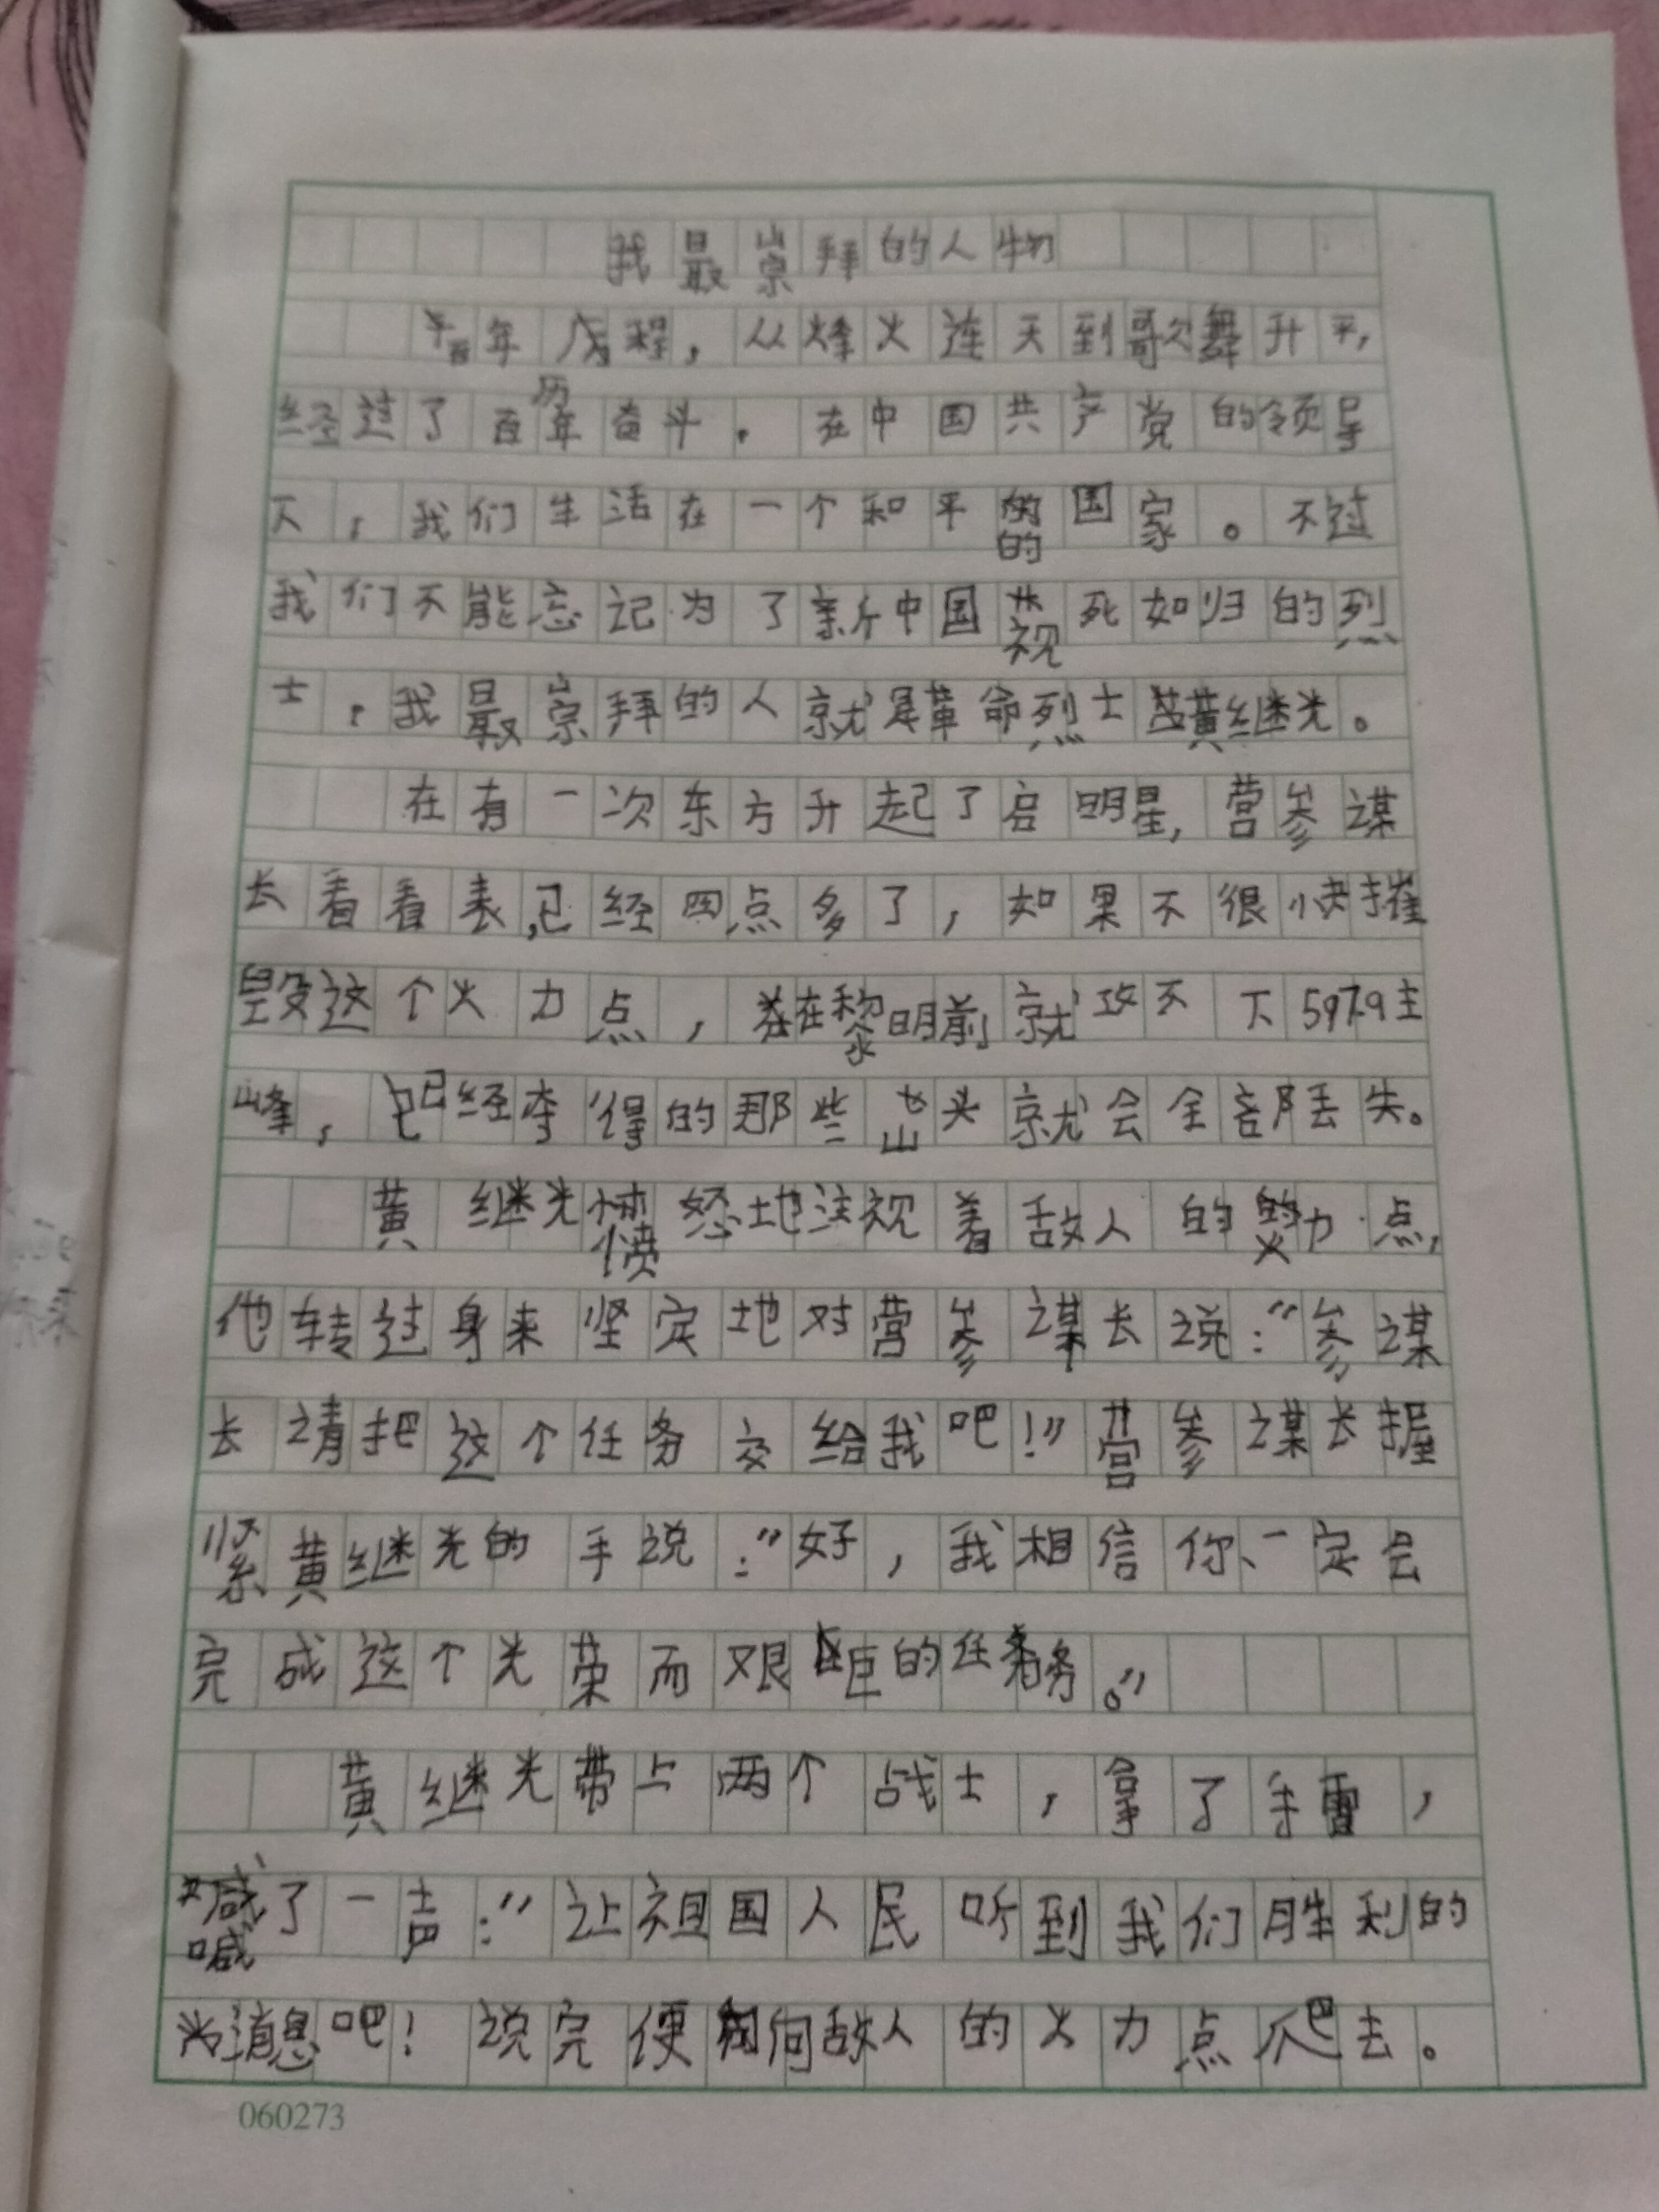 我最崇拜的人物
百年历程，从烽火连天到歌舞升平，
经过了百年奋斗。在中国共产党的领导
下，我们生活在一个和平的国家。不过
我们不能忘记为了新中国视死如归的烈
士，我最崇拜的人就是革命烈士黄继光。
在有一次东方升起了启明星，营参谋
长看看表，已经四点多了，如果不很快摧
毁这个火力点，在黎明前就攻不下597.9主
峰，已经夺得的那些山头就会全部丢失。
黄继光愤怒地注视着敌人的火力点，
他转过身来坚定地对营参谋长说：“参谋
长请把这个任务交给我吧！”营参谋长握
紧黄继光的手说：“好，我相信你、一定会
完成这个光荣而艰巨的任务。”
黄继光带上两个战士，拿了手雷，
喊了一声：“让祖国人民听到我们胜利的
消息吧！说完便向敌人的火力点爬去。
060273